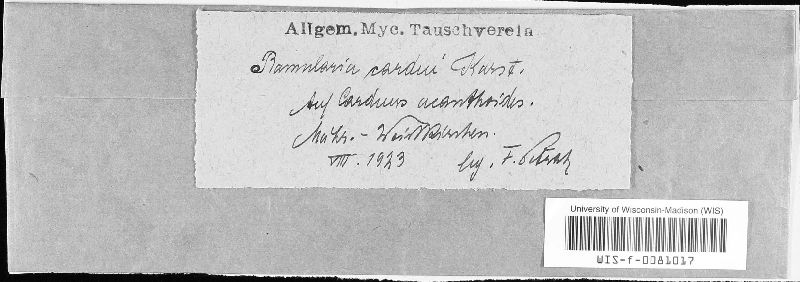 Allgem. Myc. Tauschverein
Ramularia cardui Karst.
Auf Carduus acanthoides.
Mähr. - Weisskirchen.
VIII. 1923 leg. F. Petrak
University of Wisconsin-Madison (WIS)
WIS-f-0081017